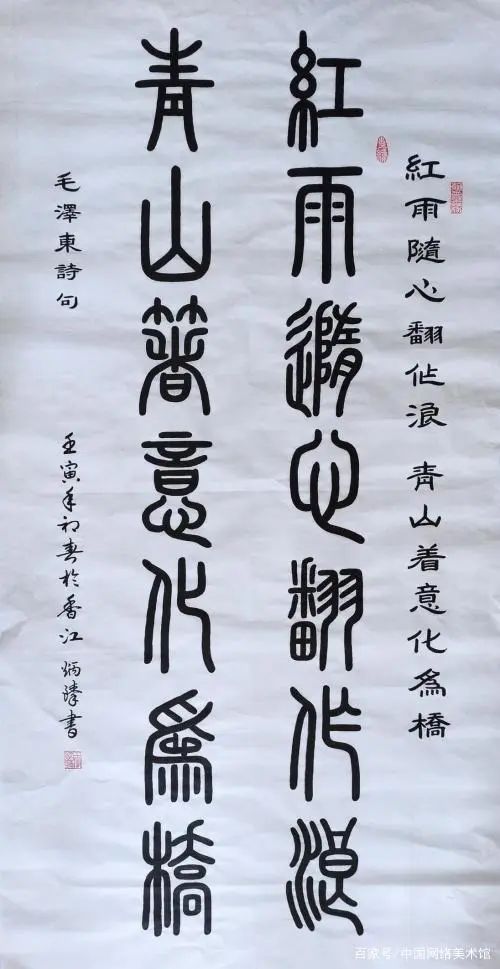 紅雨隨心翻作浪 青山着意化為橋
紅雨隨心翻作浪
青山箸意化為橋
毛澤東詩句
壬寅年初春於香江 炳書
百家号/中国网络美术馆